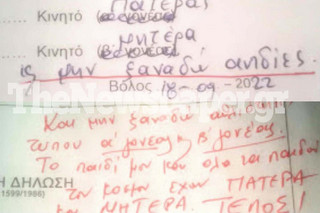 ΠΑΤΕΡΑΣ
Κινητό (α' γονέας)
ΜΗΤΕΡΑ
Κινητό (β' γονέας)
ις μην ξαναδώ αηδίες.
Βόλος 18 09 2022
TheNewspaper.gr
Και μην ξαναδώ
τύπου α' γονέας, β' γονέας.
Το παιδί μου και όλα τα παιδιά
Η ΔΗΛΩΣΗ
του κόσμου έχουν ΠΑΤΕΡΑ
(1599/1986)
και ΜΗΤΕΡΑ. ΤΕΛΟΣ!